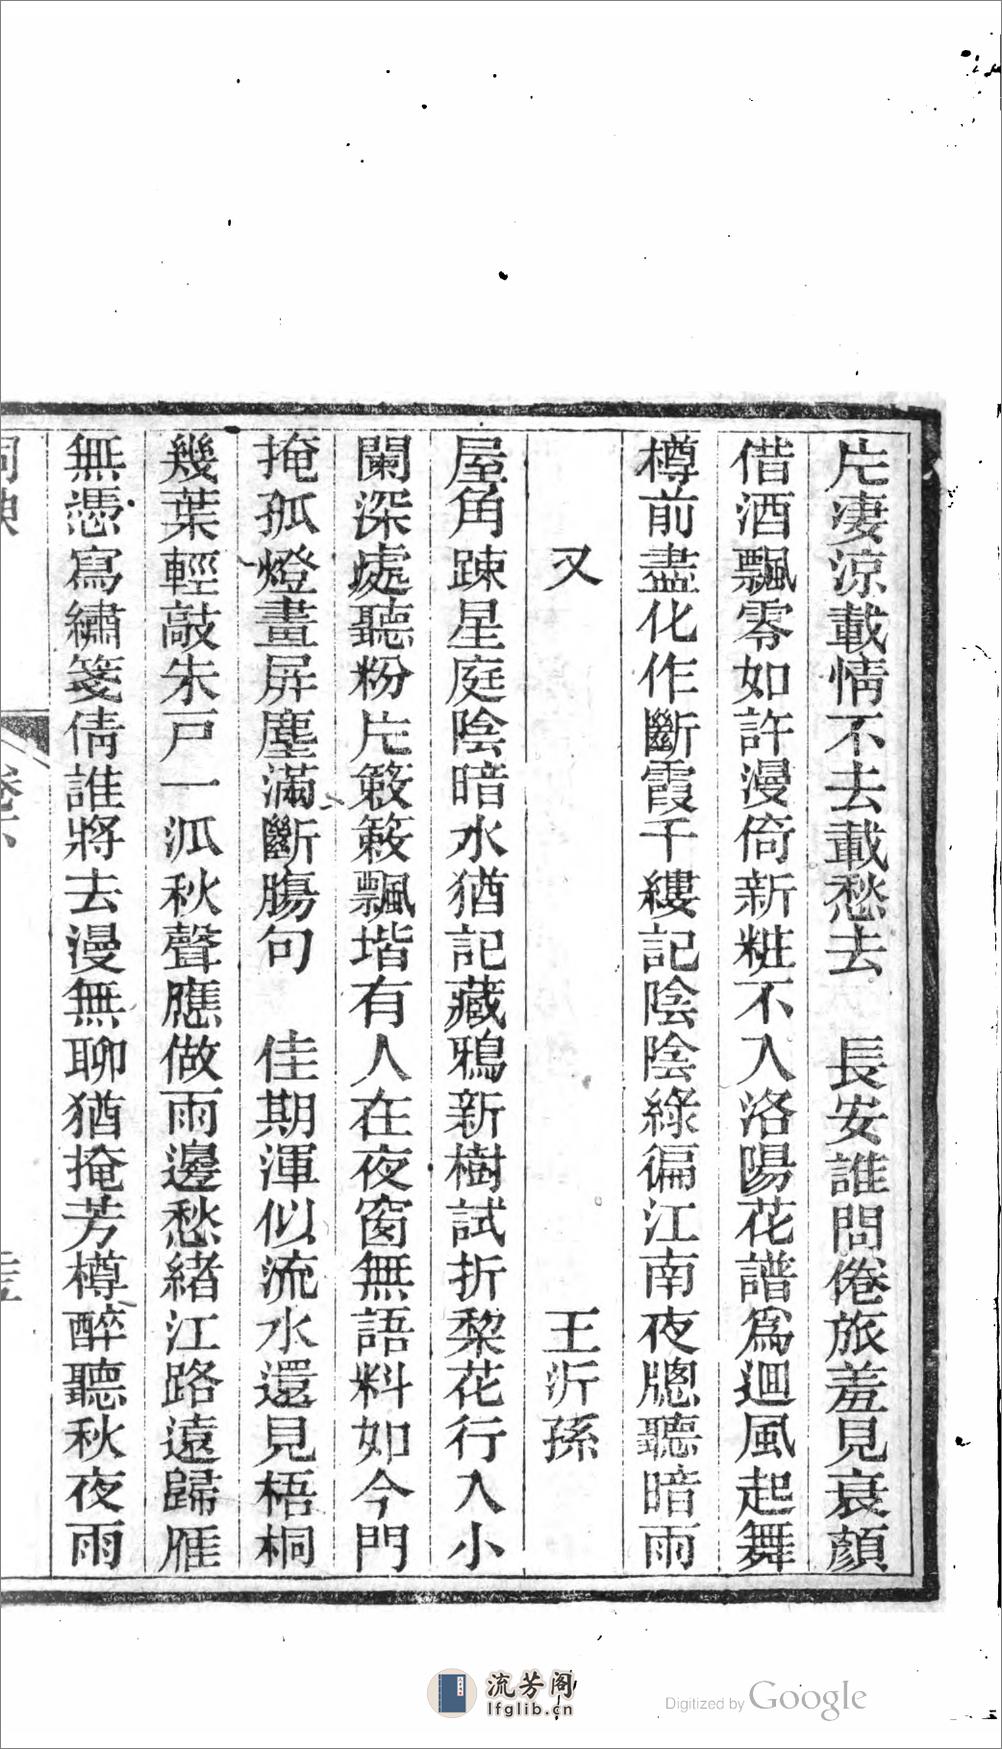 片淒涼載情不去載愁去　長安誰問倦旅羞見衰顏
借酒飄零如許漫倚新粧不入洛陽花譜爲迴風起舞
樽前盡化作斷霞千縷記陰陰綠徧江南夜牕聽暗雨
又　王沂孫
屋角疎星庭陰暗水猶記藏鴉新樹試折棃花行入小
闌深處聽粉片簌簌飄堦有人在夜窗無語料如今門
掩孤燈畫屏塵滿斷膓句　佳期渾似流水還見梧桐
幾葉輕敲朱戸一泒秋聲應做兩邊愁緒江路遠歸雁
無憑寫繡箋倩誰將去漫無聊猶掩芳樽醉聽秋夜雨
流芳阁
lfglib.cn
Digitized by Google